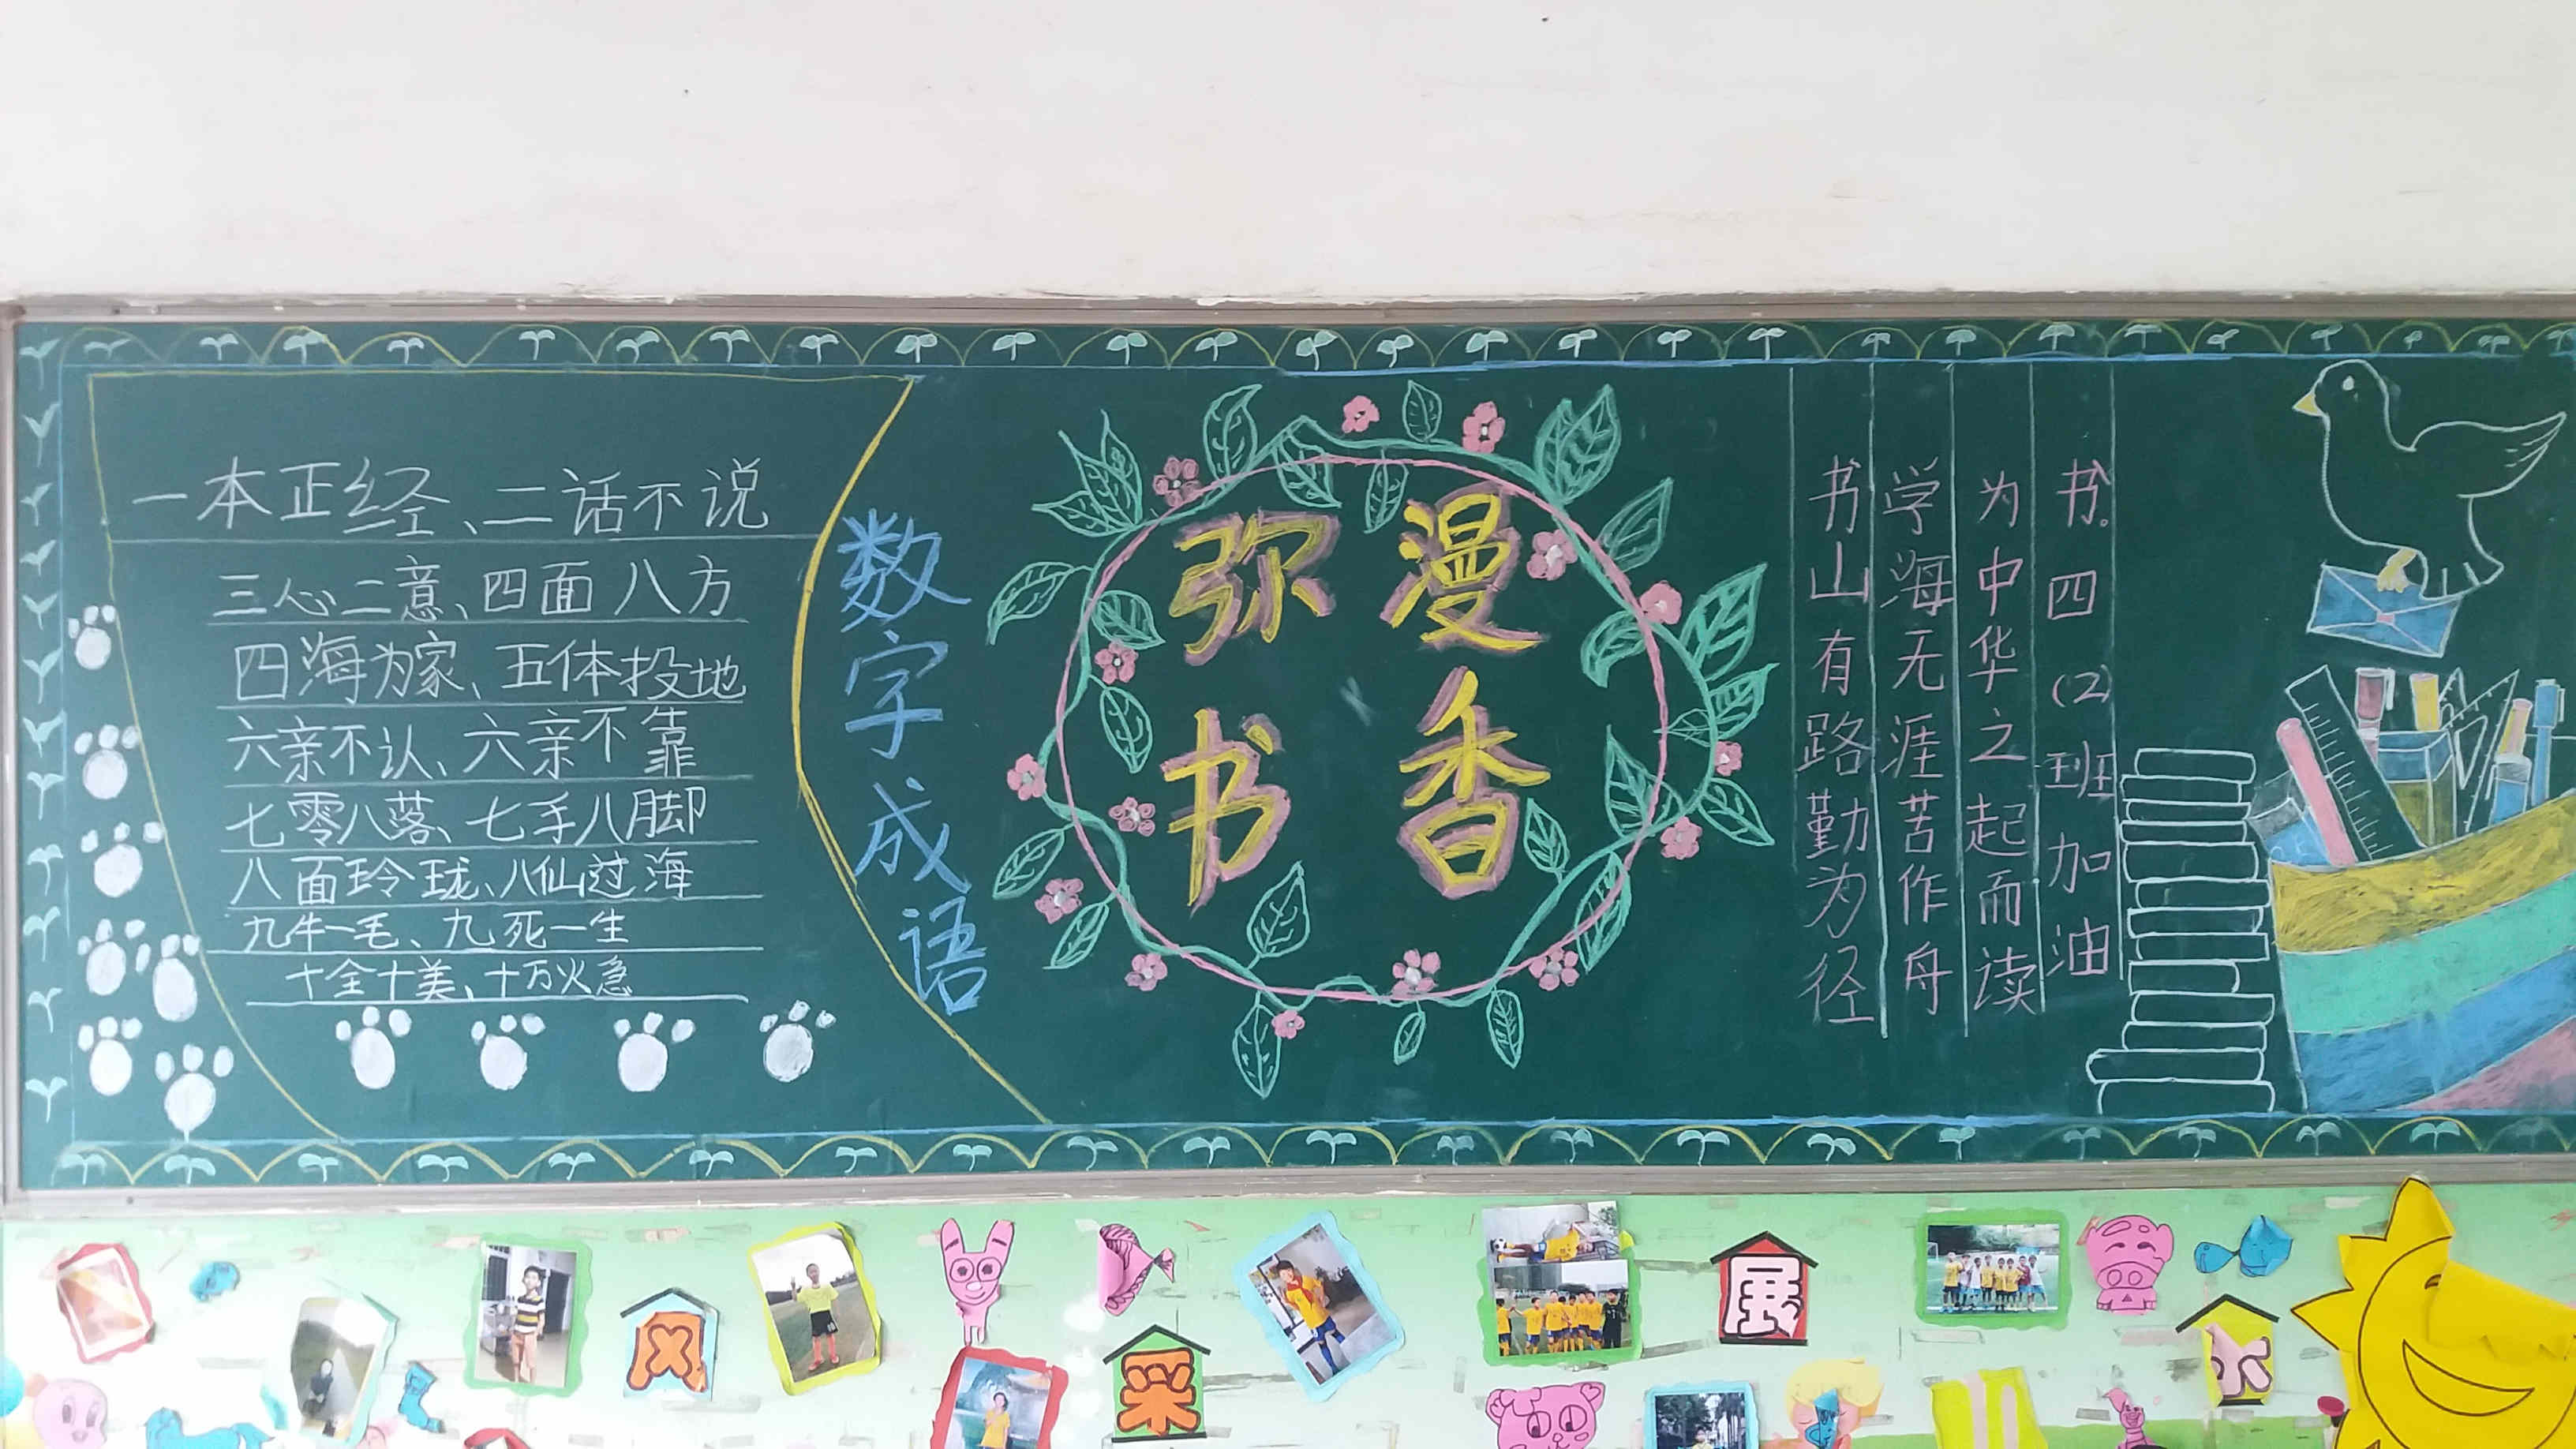 一本正经、二话不说
三心二意、四面八方
四海为家、五体投地
六亲不认、六亲不靠
七零八落、七手八脚
八面玲珑、八仙过海
九牛一毛、九死一生
十全十美、十万火急
数字成语
弥漫
书香
书山有路勤为径
学海无涯苦作舟
为中华之起而读
书。四(2)班加油
风
采
展